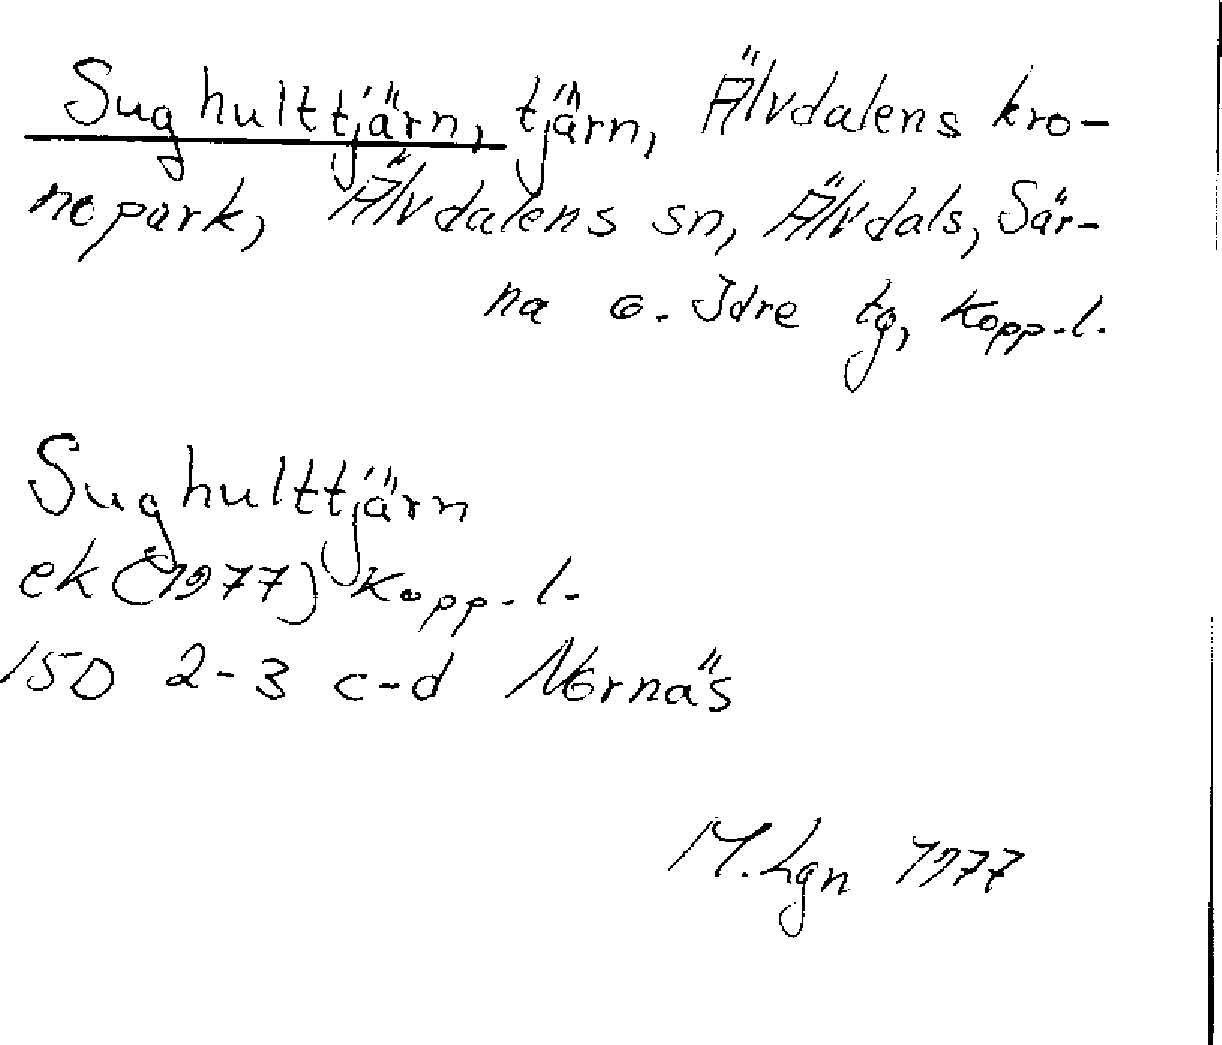 Sughulttjärn, tjärn, Älvdalens kro-
nopark, Älvdalens sn, Älvdals, Sär-
na o. Idre tg, Kopp.l.
Sughulttjärn
ek (1977) Kopp.l.
15D 2-3 c-d Nornäs
M.Lgn 1977